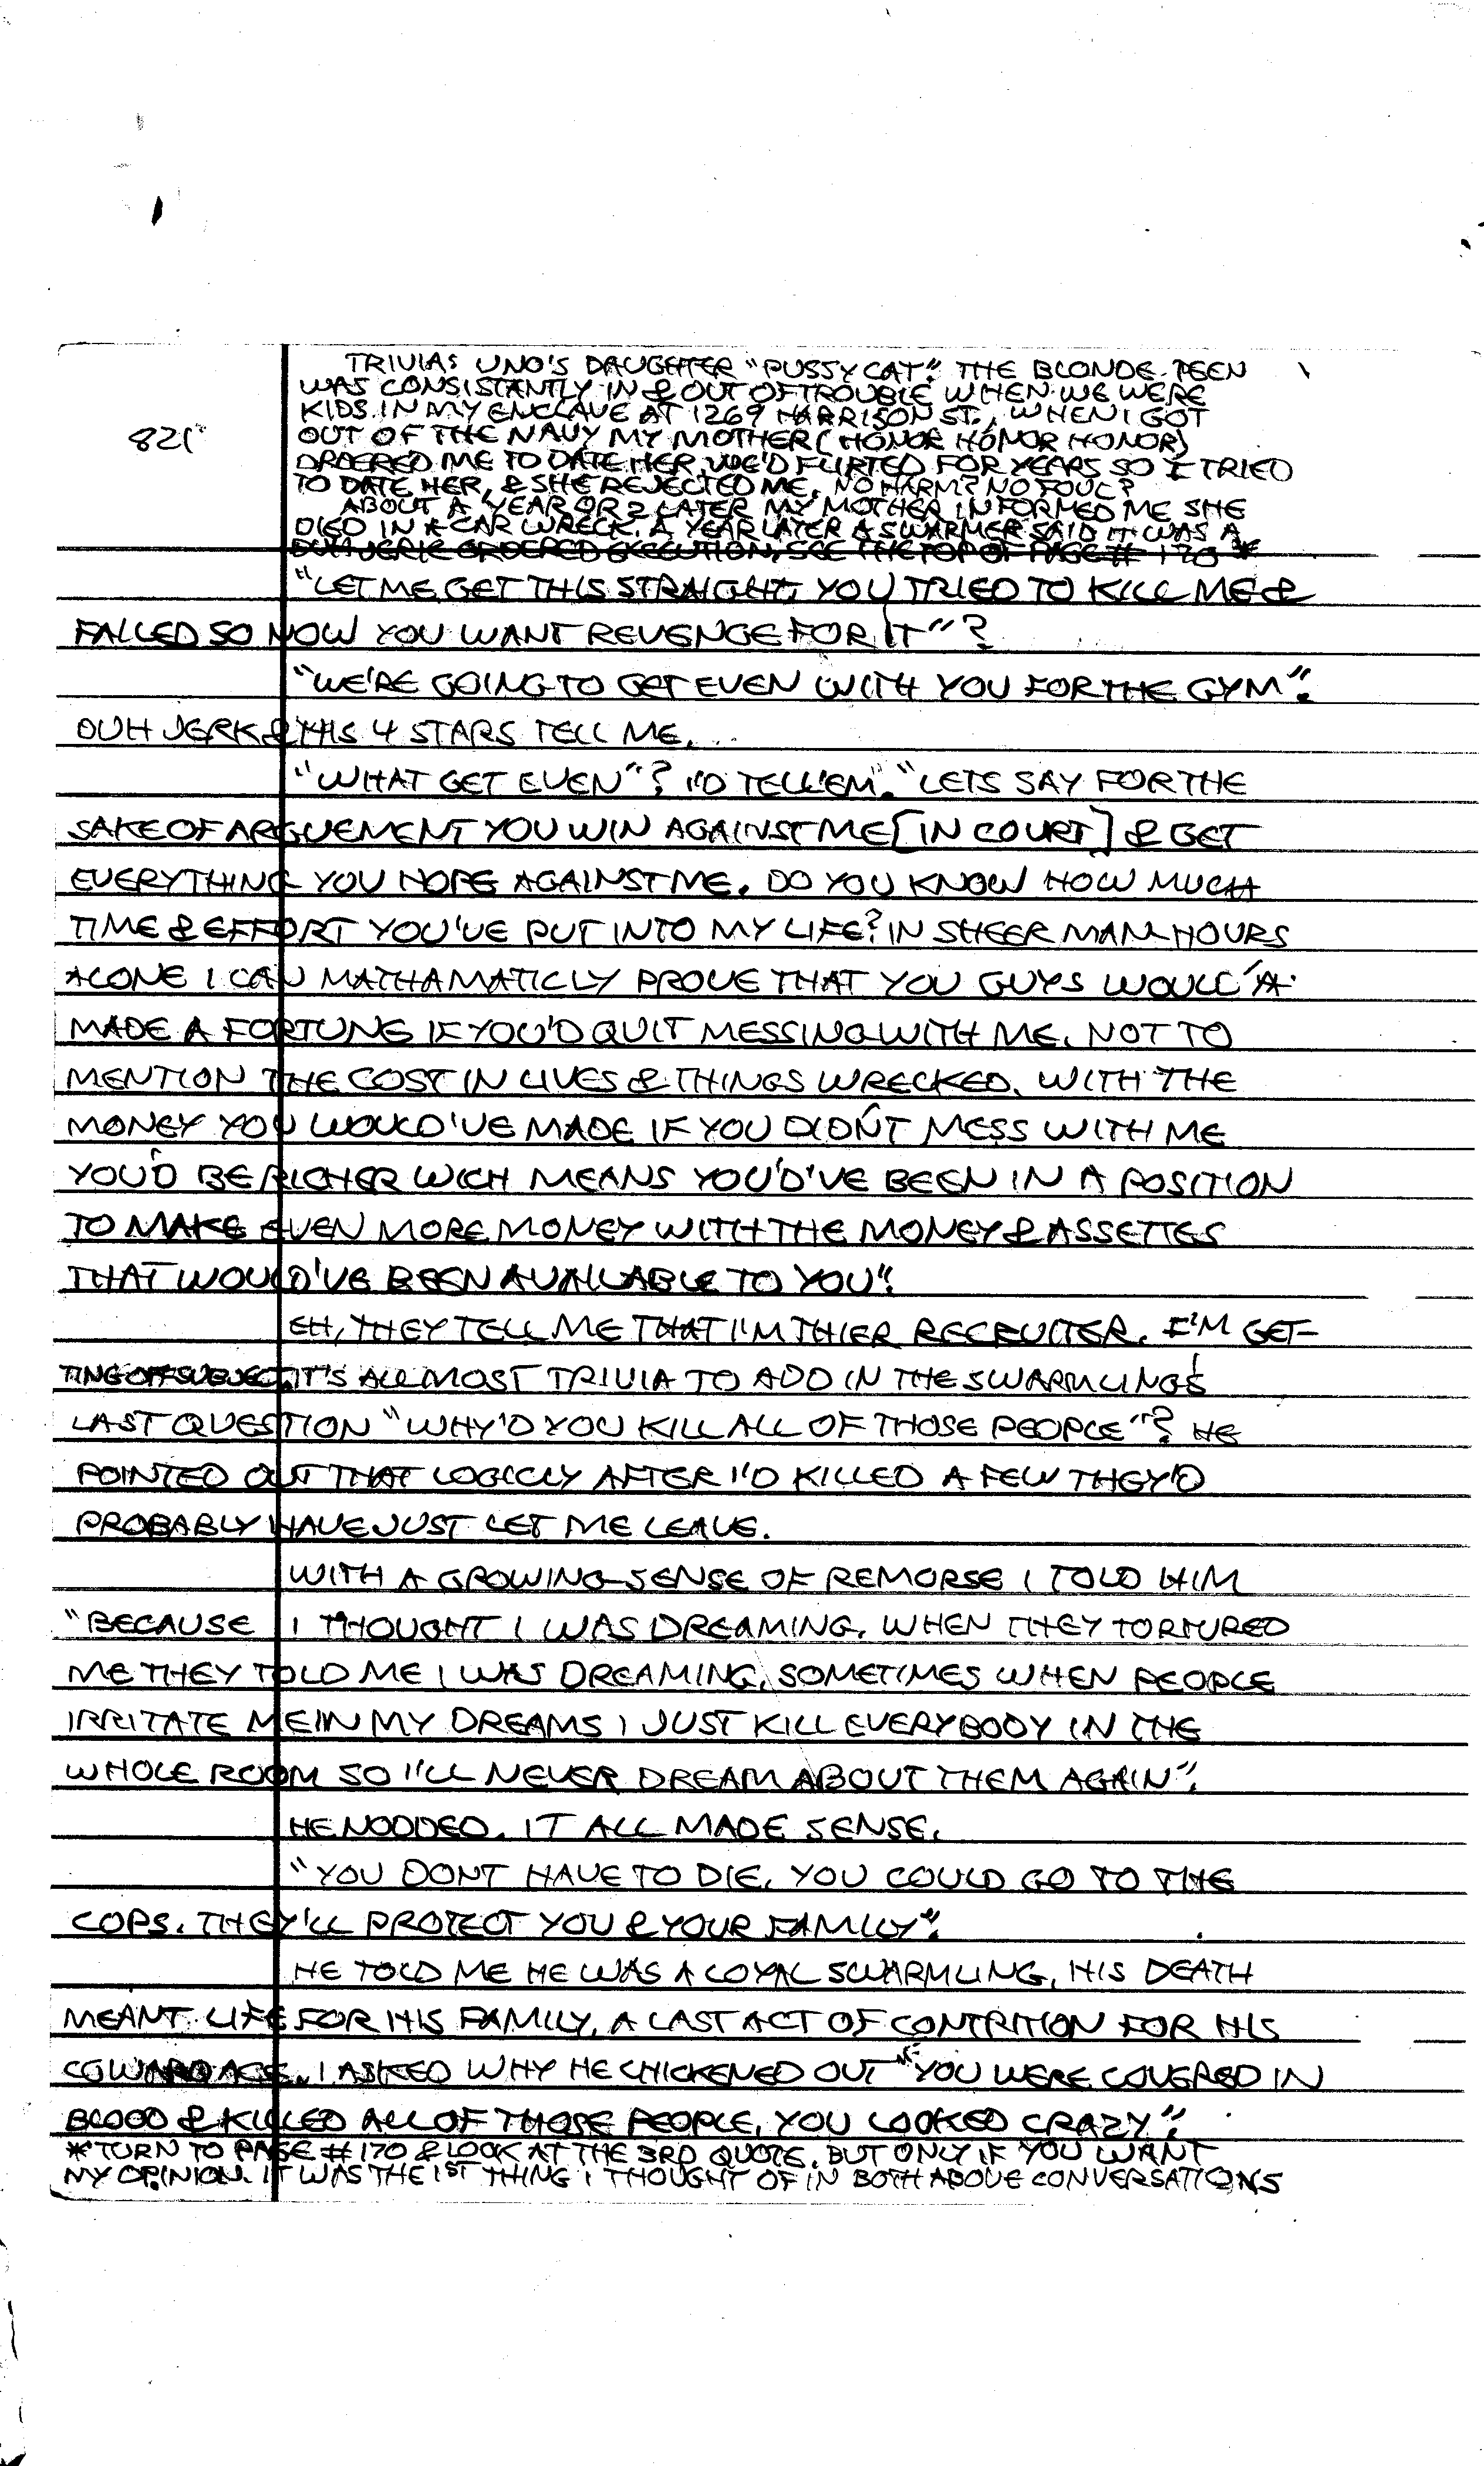 TRIVIA: UNO'S DAUGHTER "PUSSYCAT". THE BLONDE TEEN
WAS CONSISTANTLY IN & OUT OF TROUBLE WHEN WE WERE
KIDS IN MY ENCLAVE AT 1269 HARRISON ST., WHEN I GOT
821 OUT OF THE NAVY MY MOTHER (HONOR HONOR HONOR)
ORDERED ME TO DATE HER, WE'D FLIRTED FOR YEARS SO I TRIED
TO DATE HER, & SHE REJECTED ME. NO HARM? NO FOUL?
ABOUT A YEAR OR 2 LATER MY MOTHER INFORMED ME SHE
DIED IN A CAR WRECK. A YEAR LATER A SWARMER SAID IT WAS A
DUH JERK ORDERED EXECUTION, SEE THE TOP OF PAGE # 170 *
"LET ME GET THIS STRAIGHT, YOU TRIED TO KILL ME &
FAILED SO NOW YOU WANT REVENGE FOR IT"?
"WE'RE GOING TO GET EVEN WITH YOU FOR THE GYM".
DUH JERK & HIS 4 STARS TELL ME.
"WHAT GET EVEN"? I'D TELL'EM". "LETS SAY FOR THE
SAKE OF ARGUEMENT YOU WIN AGAINST ME [IN COURT] & GET
EVERYTHING YOU HOPE AGAINST ME. DO YOU KNOW HOW MUCH
TIME & EFFORT YOU'VE PUT INTO MY LIFE? IN SHEER MAN-HOURS
ALONE I CAN MATHAMATICLY PROVE THAT YOU GUYS WOULD'A
MADE A FORTUNE IF YOU'D QUIT MESSING WITH ME. NOT TO
MENTION THE COST IN LIVES & THINGS WRECKED. WITH THE
MONEY YOU WOULD'VE MADE IF YOU DIDN'T MESS WITH ME
YOU'D BE RICHER WICH MEANS YOU'D'VE BEEN IN A POSITION
TO MAKE EVEN MORE MONEY WITH THE MONEY & ASSETTES
THAT WOULD'VE BEEN AVAILABLE TO YOU".
EH, THEY TELL ME THAT I'M THIER RECRUITER. I'M GET-
TING OFF SUBJECT. IT'S ALLMOST TRIVIA TO ADD IN THE SWARMLING'S
LAST QUESTION "WHY'D YOU KILL ALL OF THOSE PEOPLE"? HE
POINTED OUT THAT LOGICLY AFTER I'D KILLED A FEW THEY'D
PROBABLY HAVE JUST LET ME LEAVE.
WITH A GROWING SENSE OF REMORSE I TOLD HIM
"BECAUSE I THOUGHT I WAS DREAMING. WHEN THEY TORTURED
ME THEY TOLD ME I WAS DREAMING, SOMETIMES WHEN PEOPLE
IRRITATE ME IN MY DREAMS I JUST KILL EVERYBODY IN THE
WHOLE ROOM SO I'LL NEVER DREAM ABOUT THEM AGAIN".
HE NODDED. IT ALL MADE SENSE.
"YOU DONT HAVE TO DIE. YOU COULD GO TO THE
COPS. THEY'LL PROTECT YOU & YOUR FAMILY".
HE TOLD ME HE WAS A LOYAL SWARMLING, HIS DEATH
MEANT LIFE FOR HIS FAMILY, A LAST ACT OF CONTRITION FOR HIS
COWARDAGE. I ASKED WHY HE CHICKENED OUT "YOU WERE COVERED IN
BLOOD & KILLED ALL OF THOSE PEOPLE, YOU LOOKED CRAZY".
* TURN TO PAGE # 170 & LOOK AT THE 3RD QUOTE. BUT ONLY IF YOU WANT
MY OPINION. IT WAS THE 1ST THING I THOUGHT OF IN BOTH ABOVE CONVERSATIONS